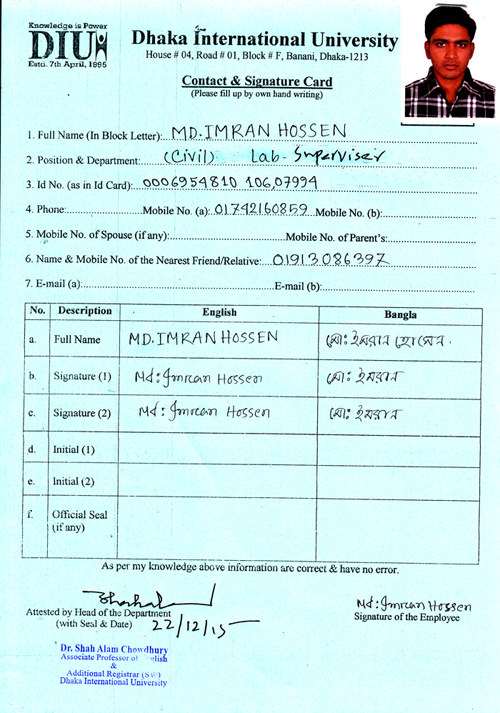 Knowledge is Power
DIU
Estd. 7th April, 1995
Dhaka International University
House # 04, Road # 01, Block # F, Banani, Dhaka-1213
Contact & Signature Card
(Please fill up by own hand writing)
1. Full Name (In Block Letter): MD. IMRAN HOSSEN
2. Position & Department: (Civil) Lab-Superviser
3. Id No. (as in Id Card): 0006954810 106,07994
4. Phone: Mobile No. (a): 01742160859 Mobile No. (b):
5. Mobile No. of Spouse (if any): Mobile No. of Parent's:
6. Name & Mobile No. of the Nearest Friend/Relative: 01913086397
7. E-mail (a): E-mail (b):
No. Description English Bangla
a. Full Name MD. IMRAN HOSSEN মোঃ ইমরান হোসেন
b. Signature (1) Md: Imran Hossen মোঃ ইমরান
c. Signature (2) Md: Imran Hossen মোঃ ইমরান
d. Initial (1)
e. Initial (2)
f. Official Seal
(if any)
As per my knowledge above information are correct & have no error.
Attested by Head of the Department
(with Seal & Date) 22/12/15
Md: Imran Hossen
Signature of the Employee
Dr. Shah Alam Chowdhury
Associate Professor of
&
Additional Registrar
Dhaka International University